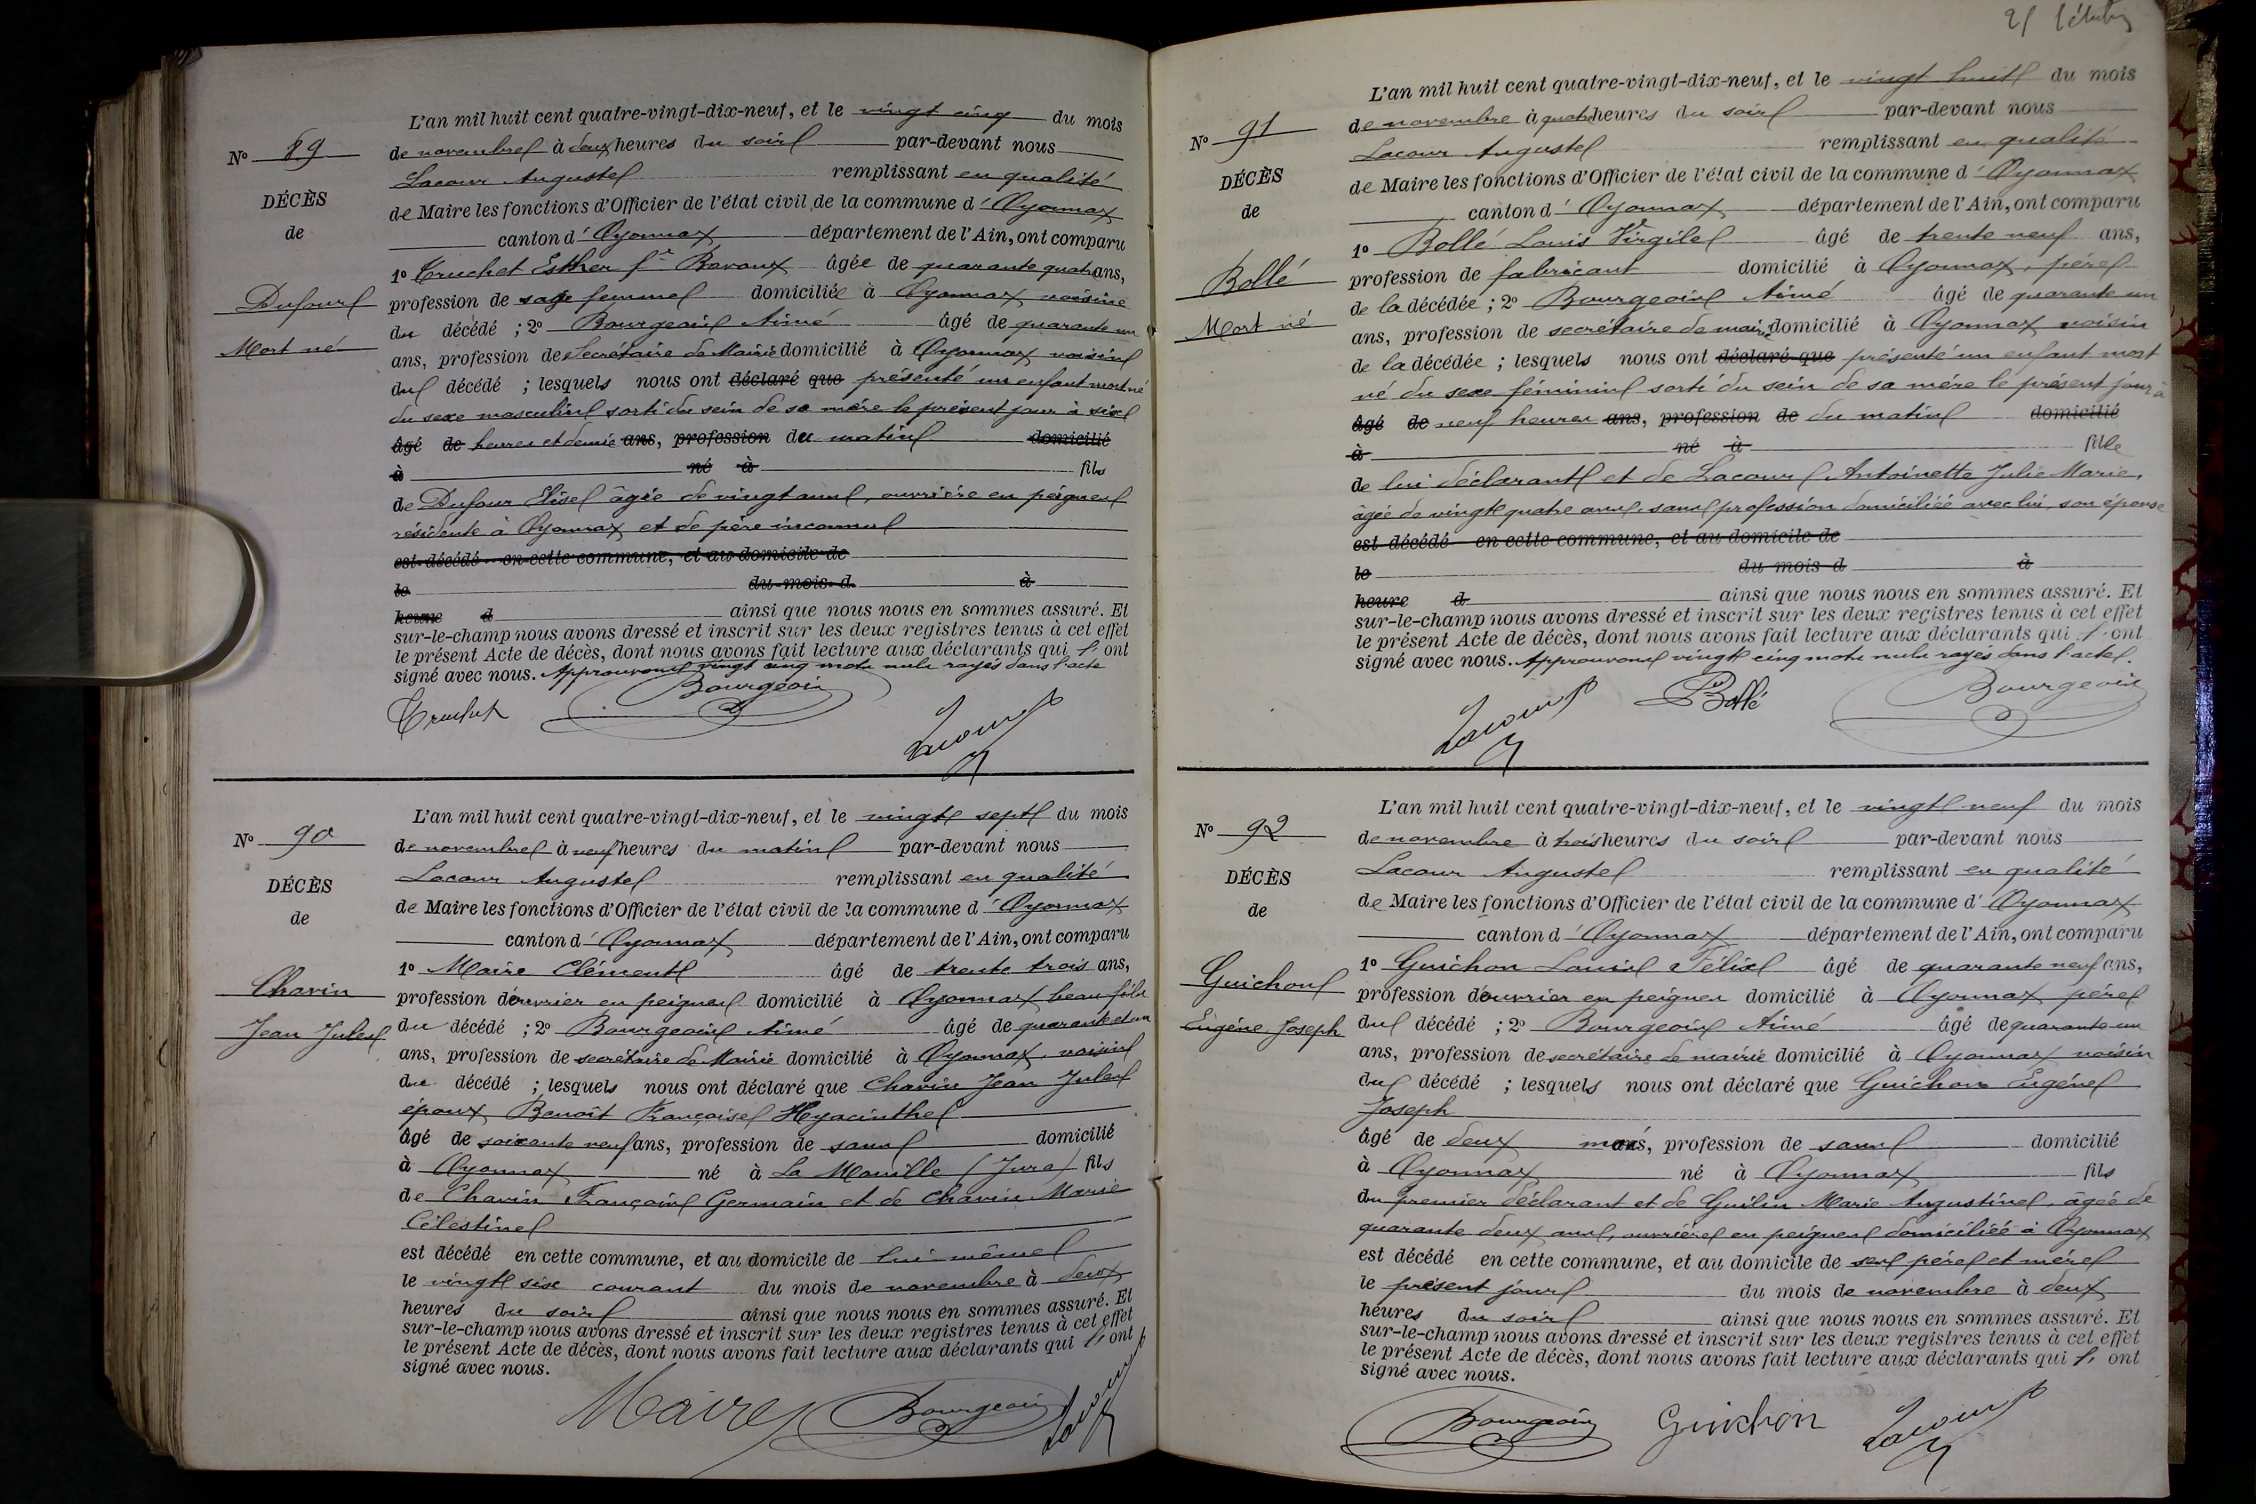 L'an mil huit cent quatre-vingt-dix-neuf, et le vingt cinq du mois
No 89
de novembre à deux heures du soir par-devant nous
Lacour Auguste remplissant en qualité
DÉCÈS
de Maire les fonctions d'Officier de l'état civil de la commune d'Oyonnax
de
canton d'Oyonnax département de l'Ain, ont comparu
1o Truchet Esther fe Bavoux âgée de quarante quatre ans,
Dufour
profession de sage femme domiciliée à Oyonnax voisine
du décédé ; 2o Bourgeois Aimé âgé de quarante un
Mort né
ans, profession de Secrétaire de Mairie domicilié à Oyonnax voisin
du décédé ; lesquels nous ont déclaré que présenté un enfant mort né
du sexe masculin sorti du sein de sa mère le présent jour à six
âgé de heures et demie ans, profession du matin domicilié
à né à fils
de Dufour Elise âgée de vingt ans, ouvrière en peignes
résidente à Oyonnax et de père inconnu
est décédé en cette commune, et au domicile de
le du mois d à
heure d ainsi que nous nous en sommes assuré. Et
sur-le-champ nous avons dressé et inscrit sur les deux registres tenus à cet effet
le présent Acte de décès, dont nous avons fait lecture aux déclarants qui l'ont
signé avec nous. Approuvons vingt cinq mots nuls rayés dans l'acte
Truchet Bourgeois Lacour
L'an mil huit cent quatre-vingt-dix-neuf, et le vingt sept du mois
No 90
de novembre à neuf heures du matin par-devant nous
Lacour Auguste remplissant en qualité
DÉCÈS
de Maire les fonctions d'Officier de l'état civil de la commune d'Oyonnax
de
canton d'Oyonnax département de l'Ain, ont comparu
1o Maire Clément âgé de trente trois ans,
Chavin
profession d'ouvrier en peignes domicilié à Oyonnax beau fils
Jean Jules
du décédé ; 2o Bourgeois Aimé âgé de quarante et un
ans, profession de secrétaire de Mairie domicilié à Oyonnax, voisin
du décédé ; lesquels nous ont déclaré que Chavin Jean Jules
époux Benoît Françoise Hyacinthe
âgé de soixante neuf ans, profession de sans domicilié
à Oyonnax né à La Mouille (Jura) fils
de Chavin François Germain et de Chavin Marie
Célestine
est décédé en cette commune, et au domicile de lui-même
le vingt six courant du mois de novembre à deux
heures du soir ainsi que nous nous en sommes assuré. Et
sur-le-champ nous avons dressé et inscrit sur les deux registres tenus à cet effet
le présent Acte de décès, dont nous avons fait lecture aux déclarants qui l'ont
signé avec nous.
Maire Bourgeois Lacour
L'an mil huit cent quatre-vingt-dix-neuf, et le vingt huit du mois
No 91
de novembre à quatre heures du soir par-devant nous
Lacour Auguste remplissant en qualité
DÉCÈS
de Maire les fonctions d'Officier de l'état civil de la commune d'Oyonnax
de
canton d'Oyonnax département de l'Ain, ont comparu
1o Bollé Louis Virgile âgé de trente neuf ans,
Bollé
profession de fabricant domicilié à Oyonnax, père
de la décédée ; 2o Bourgeois Aimé âgé de quarante un
Mort né
ans, profession de secrétaire de mairie domicilié à Oyonnax voisin
de la décédée ; lesquels nous ont déclaré que présenté un enfant mort
né du sexe féminin sorti du sein de sa mère le présent jour à
âgé de neuf heures ans, profession de du matin domicilié
à né à fille
de lui déclarant et de Lacour Antoinette Julie Marie,
âgée de vingt quatre ans, sans profession domiciliée avec lui, son épouse
est décédé en cette commune, et au domicile de
le du mois d à
heure d ainsi que nous nous en sommes assuré. Et
sur-le-champ nous avons dressé et inscrit sur les deux registres tenus à cet effet
le présent Acte de décès, dont nous avons fait lecture aux déclarants qui l'ont
signé avec nous. Approuvons vingt cinq mots nuls rayés dans l'acte.
Lacour Bollé Bourgeois
L'an mil huit cent quatre-vingt-dix-neuf, et le vingt neuf du mois
No 92
de novembre à trois heures du soir par-devant nous
Lacour Auguste remplissant en qualité
DÉCÈS
de Maire les fonctions d'Officier de l'état civil de la commune d'Oyonnax
de
canton d'Oyonnax département de l'Ain, ont comparu
1o Guichon Louis Félix âgé de quarante neuf ans,
Guichon
profession d'ouvrier en peignes domicilié à Oyonnax père
Eugène Joseph
du décédé ; 2o Bourgeois Aimé âgé de quarante un
ans, profession de secrétaire de mairie domicilié à Oyonnax voisin
du décédé ; lesquels nous ont déclaré que Guichon Eugène
Joseph
âgé de deux mois, profession de sans domicilié
à Oyonnax né à Oyonnax fils
du premier déclarant et de Guilin Marie Augustine, âgée de
quarante deux ans, ouvrière en peignes domiciliée à Oyonnax
est décédé en cette commune, et au domicile de ses père et mère
le présent jour du mois de novembre à deux
heures du soir ainsi que nous nous en sommes assuré. Et
sur-le-champ nous avons dressé et inscrit sur les deux registres tenus à cet effet
le présent Acte de décès, dont nous avons fait lecture aux déclarants qui l'ont
signé avec nous.
Bourgeois Guichon Lacour